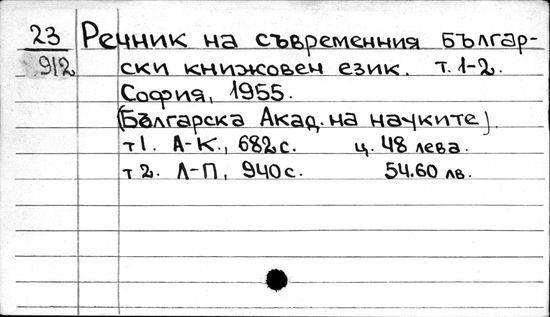 23 Речник на съвременния българ-
912 ски книжовен език. т. 1-2.
София, 1955.
(Българска Акад. на науките).
т 1. А-К., 682 с. ц. 48 лева.
т 2. Л-П, 940 с. 54.60 лв.